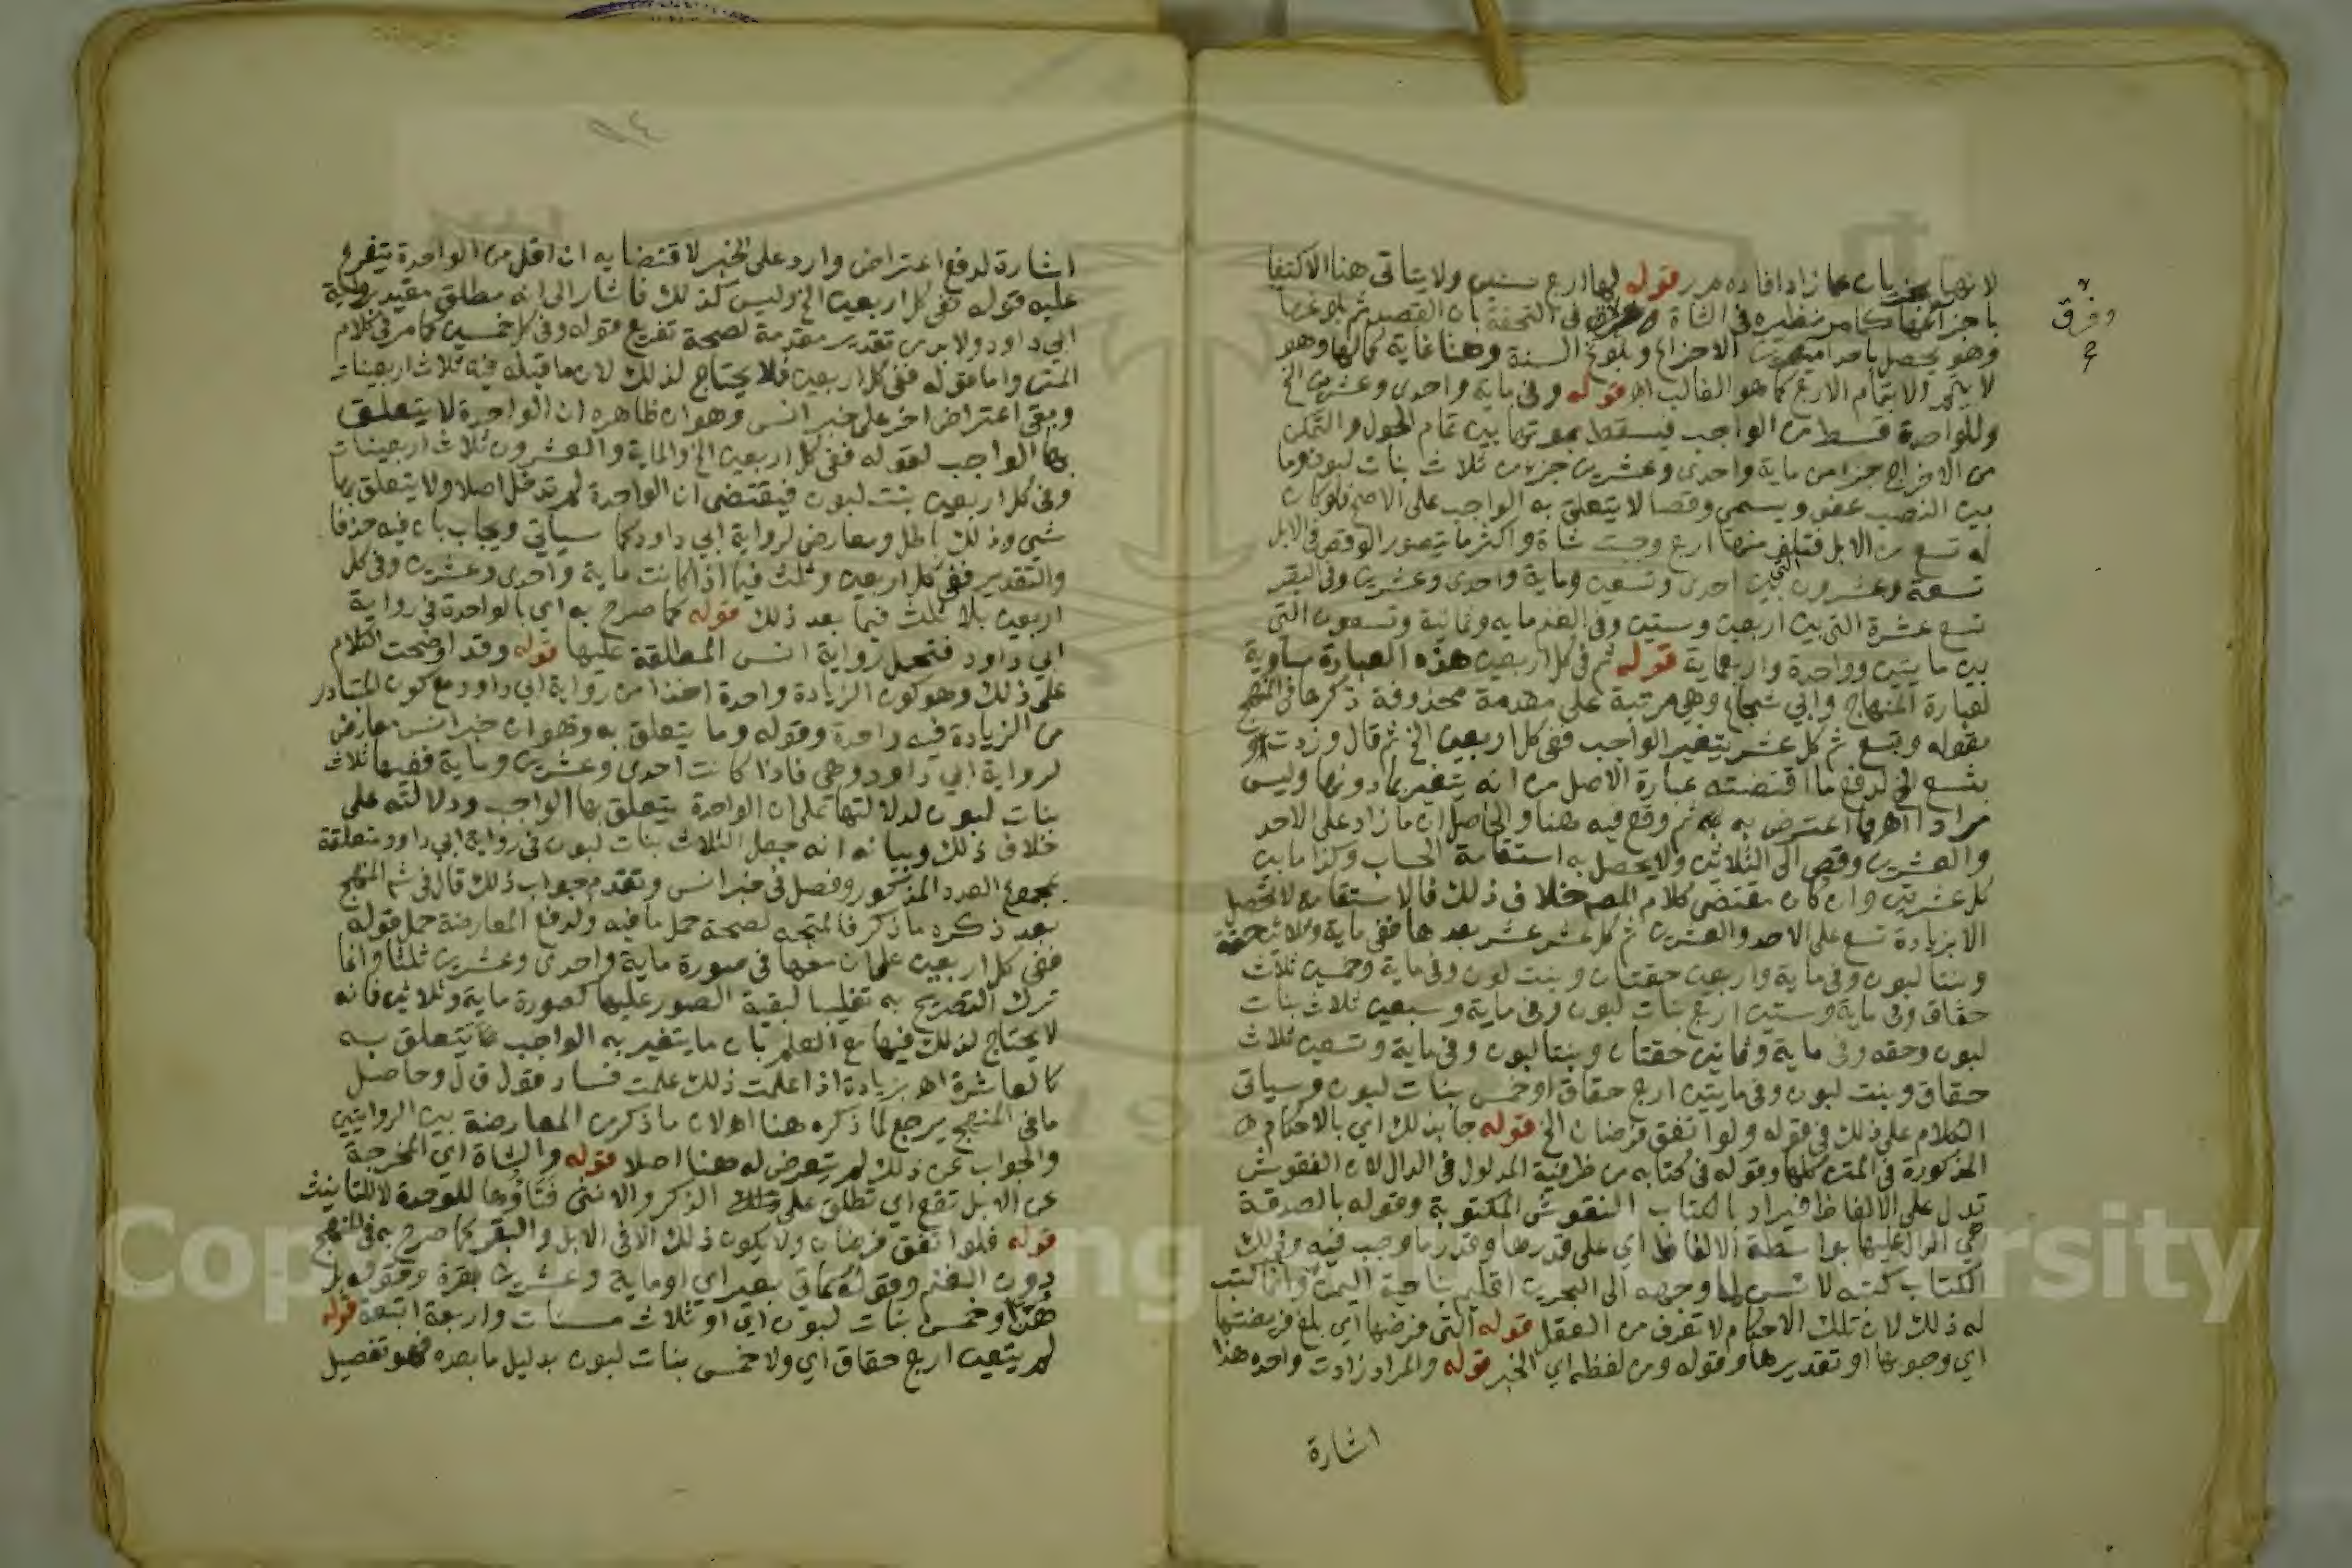 لانها يجزيان عما زاد افاده م ر قوله لها اربع سنين ولا يتاتى هنا الاكتفا
باجزاعها كما مر نظيره في الشاة وفرق في التحفة بان القصد ثم بلوغها
وهو يحصل باحد امرين الاجزاع وبلوغ السنة وهنا غاية كمالها وهو
لا يتم الا بتمام الاربع كما هو الغالب اه قوله وفي ماية واحدى وعشرين الخ
وللواحدة قسط من الواجب فيسقط بموتها بين تمام الحول والتمكن
من الاخراج جزا من ماية واحدى وعشرين جزا من ثلاث بنات لبون وما
بين النصب عفو ويسمى وقصا لا يتعلق به الواجب على الاصح فلو كان
له تسع من الابل فتلف منها اربع وجبت شاة واكثر ما يتصور الوقص في الابل
تسعة وعشرون التي بين احدى وتسعين وماية واحدى وعشرين وفي البقر
تسع عشرة التي بين اربعين وستين وفي الغنم ماية وثمانية وتسعون التي
بين مايتين وواحدة واربعماية قوله ثم في كل اربعين هذه العبارة مساوية
لعبارة المنهاج وابي شجاع وهي مرتبة على مقدمة محذوفة ذكرها في المنهج
بقوله وبتسع ثم كل عشر يتغير الواجب ففي كل اربعين الخ ثم قال وزدت
بتسع الخ لدفع ما اقتضته عبارة الاصل من انه يتغير بما دونها وليس
مرادا اه وما اعترض به ثم وقع فيه هنا والحاصل ان ما زاد على الاحد
والعشرين وقص الى الثلاثين ولا يحصل به استقامة الحساب وكذا ما بين
كل عشرتين وان كان مقتضى كلام المصـ خلاف ذلك فالاستقامة لا تحصل
الا بزيادة تسع على الاحد والعشرين ثم كل عشر عشر بعدها ففي ماية وثلاثين حقة
وبنتا لبون وفي ماية واربعين حقتان وبنت لبون وفي ماية وخمسين ثلاث
حقاق وفي ماية وستين اربع بنات لبون وفي ماية وسبعين ثلاث بنات
لبون وحقه وفي ماية وثمانين حقتان وبنتا لبون وفي ماية وتسعين ثلاث
حقاق وبنت لبون وفي مايتين اربع حقاق او خمس بنات لبون وسياتي
الكلام على ذلك في قوله ولو اتفق فرضان الخ قوله جا بذلك اي بالاحكام
المذكورة في المتن كلها وقوله في كتابه من ظرفية المدلول في الدال لان النقوش
تدل على الالفاظ فيراد بالكتاب النقوش المكتوبة وقوله بالصدقة
اي الدال عليها بواسطة الالفاظ اي على قدرها وقدر ما وجب فيه وذلك
الكتاب كتبه لانس لما وجهه الى البحرين اقليم بناحية اليمن وانما كتب
له ذلك لان تلك الاحكام لا تعرف من العقل قوله التي فرضها اي بلغ فريضتها
اي وجوبها او تقديرها وقوله ومن لفظه اي الخبر قوله والمراد زادت واحده هذا
اشارة
وفرق
اشارة لدفع اعتراض وارد على الخبر لاقتضايه ان اقل من الواحدة يتفرع
عليه قوله ففي كل اربعين الخ وليس كذلك فاشار الى انه مطلق مقيد برواية
ابي داود ولا بد من تقدير مقدمة لصحة تفريع قوله وفي كل خمسين كما مر في كلام
المتن واما قوله ففي كل اربعين فلا يحتاج لذلك لان ما قبله فيه ثلاث اربعينات
وبقي اعتراض اخر على خبر انس وهو ان ظاهره ان الواحدة لا يتعلق
بها الواجب لقوله ففي كل اربعين الخ والماية والعشرون ثلاث اربعينات
وفي كل اربعين بنت لبون فيقتضي ان الواحدة لم تدخل اصلا ولا يتعلق بها
شي وذلك باطل ومعارض لرواية ابي داود كما سياتي ويجاب بان فيه حذفا
والتقدير ففي كل اربعين وثلث فيما اذا كانت ماية واحدى وعشرين وفي كل
اربعين بلا ثلث فيما بعد ذلك قوله كما صرح به اي بالواحدة في رواية
ابي داود فتحمل رواية انس المطلقة عليها قوله وقد اوضحت الكلام
على ذلك وهو كون الزيادة واحدة اخذا من رواية ابي داود مع كون المتبادر
من الزيادة فيه واحدة وقوله وما يتعلق به وهو ان خبر انس معارض
لرواية ابي داود وهي فاذا كانت احدى وعشرين وماية ففيها ثلاث
بنات لبون لدلالتها على ان الواحدة يتعلق بها الواجب ودلالته على
خلاف ذلك وبيانه انه جعل الثلاث بنات لبون في رواية ابي داود متعلقة
بمجموع العدد المذكور وفصل في خبر انس وتقدم جواب ذلك قال في شـ المنهج
بعد ذكره ما ذكر فالمتجه لصحة حمل ما فيه ولدفع المعارضة حمل قوله
ففي كل اربعين على ان معها في صورة ماية واحدى وعشرين ثلثا وانما
ترك التصريح به تغليبا لبقية الصور عليها كصورة ماية وثلاثين فانه
لا يحتاج لذلك فيها مع العلم بان ما يتغير به الواجب يتعلق به
كالعاشرة اه بزيادة اذا علمت ذلك علمت فساد قول ق ل وحاصل
ما في المنهج يرجع لما ذكره هنا اه لان ما ذكر من المعارضة بين الروايتين
والجواب عن ذلك لم يتعرض له هنا اصلا قوله والشاة اي المخرجة
عن الابل تقع اي تطلق على الذكر والانثى فتاؤها للوحدة لا للتانيث
قوله فلو اتفق فرضان ولا يكون ذلك الا في الابل والبقر كما صرح به في المنهج
دون الغنم وقوله كمائتي بعير اي او ماية وعشرين بقرة وقوله بل
هن او خمس بنات لبون اي او ثلاث مسنات واربعة اتبعة قوله
لم يتعين اربع حقاق اي ولا خمس بنات لبون بدليل ما بعده فهو تفصيل
Copyright © King Saud University